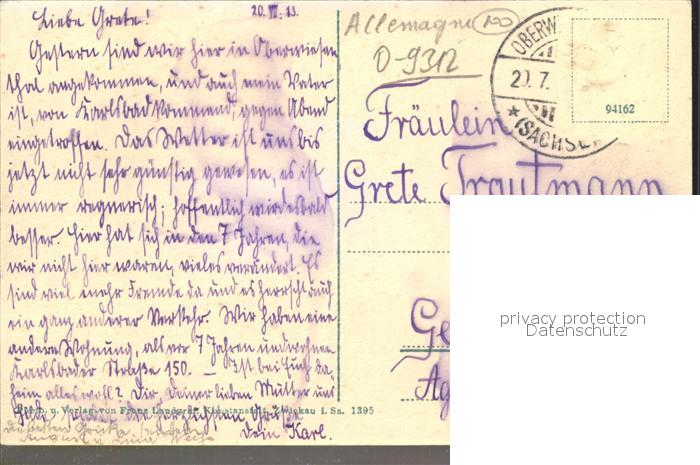 20. VII. 13.
Liebe Grete!
Gestern sind wir hier in Oberwiesen
thal angekommen, und auch mein Vater
ist, von Karlsbad kommend, gegen Abend
eingetroffen. Das Wetter ist uns bis
jetzt nicht sehr günstig gewesen, es ist
immer regnerisch; hoffentlich wird es bald
besser. Hier hat sich in den 7 Jahren, die
wir nicht hier waren, vieles verändert. Es
sind viel mehr Fremde da und es herrscht auch
ein ganz anderer Verkehr. Wir haben eine
andere Wohnung, als vor 7 Jahren und wohnen
Karlsbader Straße 150. — Ist bei Euch da-
heim alles wohl? Dir, Deiner lieben Mutter und
herzlichsten Grüße
Dein Karl.
u. Verlag von Franz Landgraf, Kunstanstalt, Zwickau i. Sa. 1395
Allemagne 100
0-9312
OBERW
20.7.
(SACHSE
94162
Fräulein
Grete Trautmann
Ge
Ag
privacy protection
Datenschutz